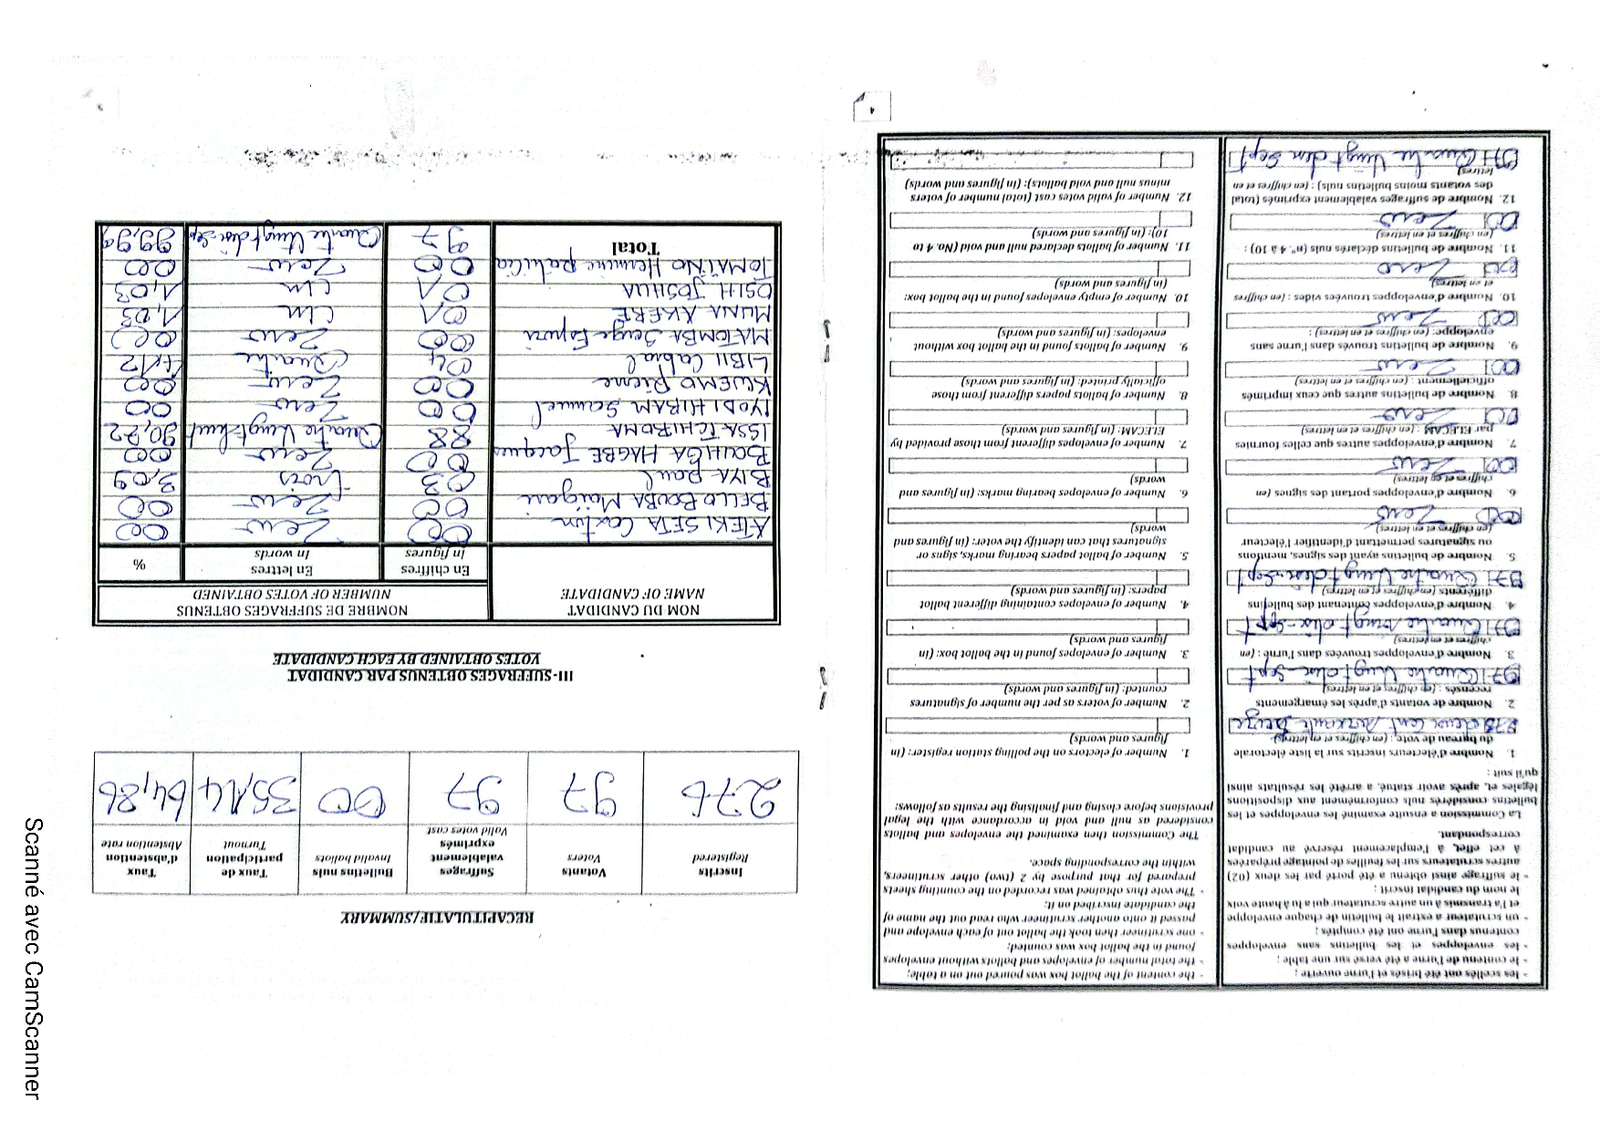 - les scellés ont été brisés et l'urne ouverte ;
- le contenu de l'urne a été versé sur une table ;
- les enveloppes et les bulletins sans enveloppes contenus dans l'urne ont été comptés ;
- un scrutateur a extrait le bulletin de chaque enveloppe et l'a transmis à un autre scrutateur qui a lu à haute voix le nom du candidat inscrit ;
- le suffrage ainsi obtenu a été porté par les deux (02) autres scrutateurs sur les feuilles de pointage préparées à cet effet, à l'emplacement réservé au candidat correspondant.
La Commission a ensuite examiné les enveloppes et les bulletins considérés nuls conformément aux dispositions légales et, après avoir statué, a arrêté les résultats ainsi qu'il suit :
1. Nombre d'électeurs inscrits sur la liste électorale du bureau de vote : (en chiffres et en lettres)
2. Nombre de votants d'après les émargements recensés : (en chiffres et en lettres)
97 Quatre Vingt dix-Sept
3. Nombre d'enveloppes trouvées dans l'urne : (en chiffres et en lettres)
97 Quatre vingt dix-Sept
4. Nombre d'enveloppes contenant des bulletins différents : (en chiffres et en lettres)
97 Quatre Vingt dix-Sept
5. Nombre de bulletins ayant des signes, mentions ou signatures permettant d'identifier l'électeur (en chiffres et en lettres)
00 Zero
6. Nombre d'enveloppes portant des signes (en chiffres et en lettres)
00 Zero
7. Nombre d'enveloppes autres que celles fournies par ELECAM : (en chiffres et en lettres)
00 Zero
8. Nombre de bulletins autres que ceux imprimés officiellement : (en chiffres et en lettres)
00 Zero
9. Nombre de bulletins trouvés dans l'urne sans enveloppe: (en chiffres et en lettres) :
00 Zero
10. Nombre d'enveloppes trouvées vides : (en chiffres et en lettres)
00 Zero
11. Nombre de bulletins déclarés nuls (n°. 4 à 10) : (en chiffres et en lettres)
00 Zero
12. Nombre de suffrages valablement exprimés (total des votants moins bulletins nuls) : (en chiffres et en lettres)
97 Quatre Vingt dix Sept
- the content of the ballot box was poured out on a table;
- the total number of envelopes and ballots without envelopes found in the ballot box was counted;
- one scrutineer then took the ballot out of each envelope and passed it onto another scrutineer who read out the name of the candidate inscribed on it.
- The vote thus obtained was recorded on the counting sheets prepared for that purpose by 2 (two) other scrutineers, within the corresponding space.
The Commission then examined the envelopes and ballots considered as null and void in accordance with the legal provisions before closing and finalising the results as follows:
1. Number of electors on the polling station register: (in figures and words)
2. Number of voters as per the number of signatures counted: (in figures and words)
3. Number of envelopes found in the ballot box: (in figures and words)
4. Number of envelopes containing different ballot papers: (in figures and words)
5. Number of ballot papers bearing marks, signs or signatures that can identify the voter: (in figures and words)
6. Number of envelopes bearing marks: (in figures and words)
7. Number of envelopes different from those provided by ELECAM: (in figures and words)
8. Number of ballots papers different from those officially printed: (in figures and words)
9. Number of ballots found in the ballot box without envelopes: (in figures and words)
10. Number of empty envelopes found in the ballot box: (in figures and words)
11. Number of ballots declared null and void (No. 4 to 10): (in figures and words)
12. Number of valid votes cast (total number of voters minus null and void ballots): (in figures and words)
4
RECAPITULATIF/SUMMARY
Inscrits Registered | Votants Voters | Suffrages valablement exprimés Valid votes cast | Bulletins nuls Invalid ballots | Taux de participation Turnout | Taux d'abstention Abstention rate
276 | 97 | 97 | 00 | 35,14 | 64,86
III- SUFFRAGES OBTENUS PAR CANDIDAT
VOTES OBTAINED BY EACH CANDIDATE
NOM DU CANDIDAT NAME OF CANDIDATE | NOMBRE DE SUFFRAGES OBTENUS NUMBER OF VOTES OBTAINED
En chiffres In figures | En lettres In words | %
ATEKI SETA Caxton | 00 | Zero | 00
BELLO BOUBA Maïgari | 00 | Zero | 00
BIYA Paul | 03 | trois | 3,09
BOUHGA HAGBE Jacques | 00 | Zero | 00
ISSA TCHIROMA | 88 | Quatre Vingt-huit | 90,72
IYODI HIRAM Samuel | 00 | Zero | 00
KWEMO Pierre | 00 | Zero | 00
LIBII Cabral | 04 | Quatre | 4,12
MATOMBA Serge Espoir | 00 | Zero | 00
MUNA AKERE | 01 | Un | 1,03
OSIH JOSHUA | 01 | Un | 1,03
TOMAINO Hermine Patricia | 00 | Zero | 00
Total | 97 | Quatre Vingt dix-Sep | 99,99
Scanné avec CamScanner